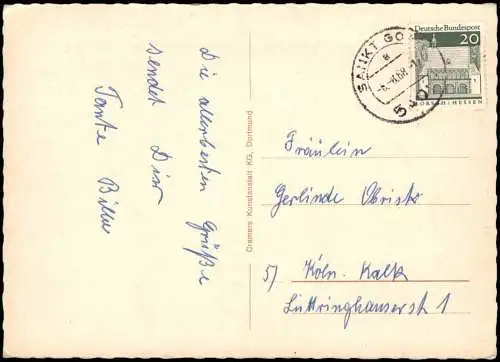 Die allerbesten Grüße
sendet Dir
Tante Billa
Cramers Kunstanstalt KG, Dortmund
SANKT GO
a
5401
Deutsche Bundespost
20
LORSCH / HESSEN
Fräulein
Gerlinde Obrists
5) Köln-Kalk
Lüttringhauserstr 1